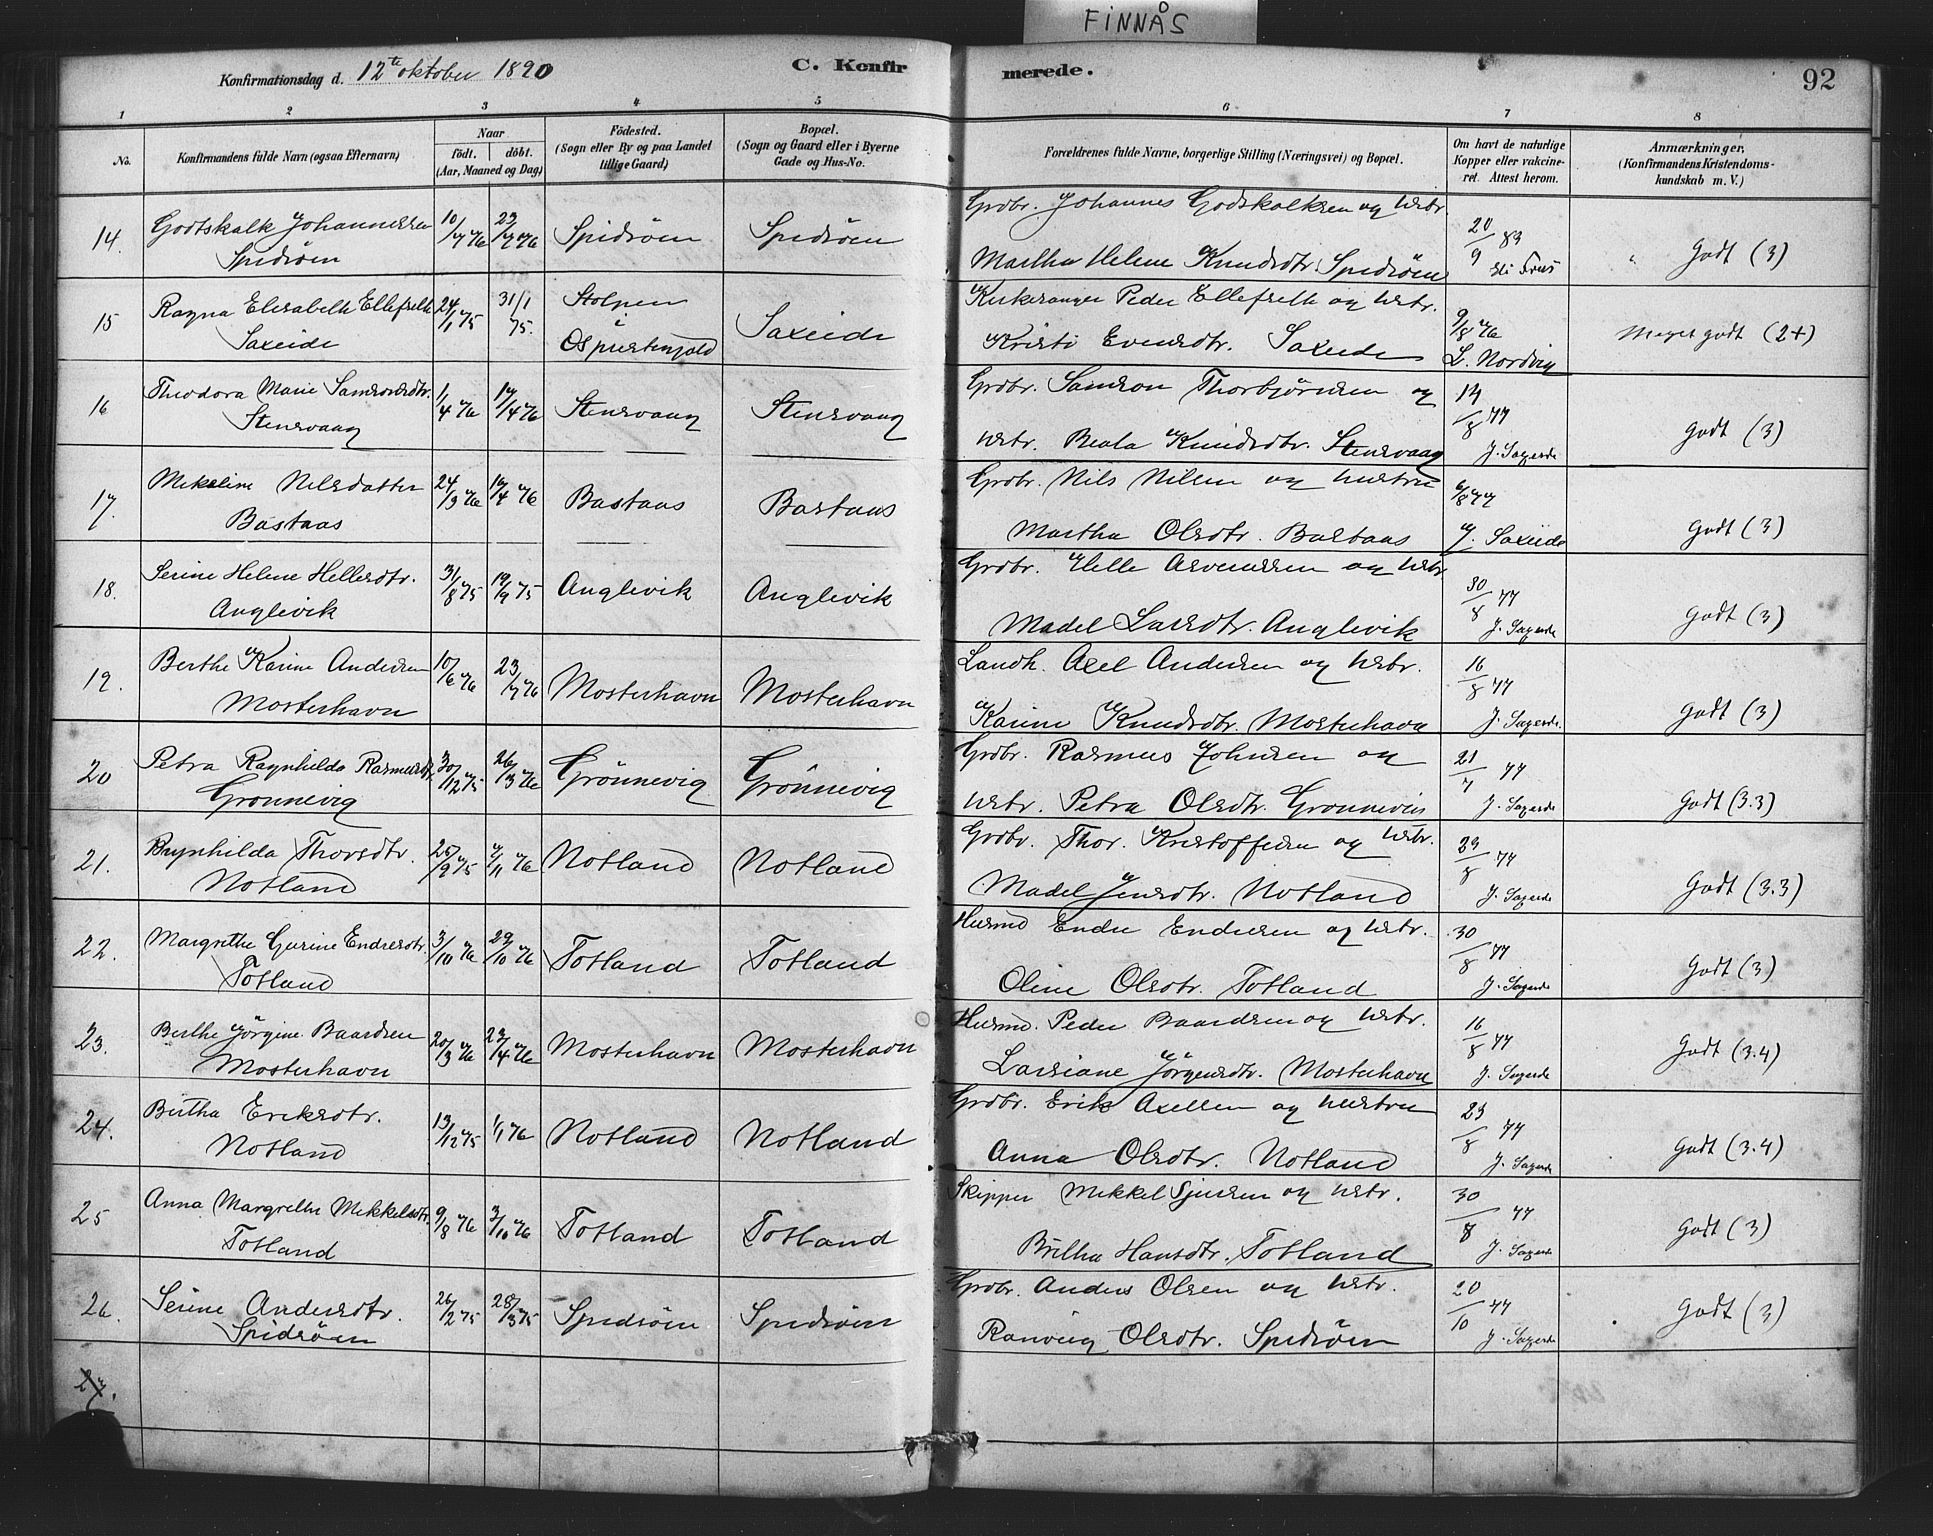 FINNÅS
Konfirmationsdag d. 12te oktober 1890
C. Konfir
merede.
92
1 2 3 4 5 6 7 8
No.
Konfirmandens fulde Navn (ogsaa Efternavn)
Naar
født. døbt.
(Aar, Maaned og Dag)
Födested.
(Sogn eller By og paa Landet
tillige Gaard)
Bopæl.
(Sogn og Gaard eller i Byerne
Gade og Hus-No.
Forældrenes fulde Navne, borgerlige Stilling (Næringsvei) og Bopæl.
Om havt de naturlige
Kopper eller vakcine-
ret. Attest herom.
Anmærkninger,
(Konfirmandens Kristendoms-
kundskab m. V.)
14. Godtskalk Johannessen
Spidsöen
10/7 76 23/7 76 Spidsöen Spidsöen
Grdbr. Johannes Godskalksen og Hstr.
Martha Helene Knudsdtr. Spidsöen
20/9 83
Godt (3)
15 Ragna Elisabeth Ellefseth
Saxeide
24/1 75 31/1 75.
Stolpen
i
Os prestegjeld
Saxeide
Kirkesanger Peder Ellefseth og Hstr.
Kristi Evensdtr. Saxeide
9/8 76
L. Nordvig
Meget godt (2+)
16 Theodora Marie Samsonsdtr.
Stensvaag
1/4 76 17/4 76 Stensvaag Stensvaag
Grdbr. Samson Thorbjörnsen og
Hstr. Beata Knudsdtr. Stensvaag
14/8 77
J. Sagerde
Godt (3)
17. Mekeline Nilsdatter
Bastaas
24/3 76 17/4 76 Bastaas Bastaas
Grdbr. Nils Nilsen og Hustru
Martha Olsdtr. Bastaas
6/8 77
J. Saxeide
Godt (3)
18. Serine Helene Hellesdtr.
Anglevik
31/8 75 19/9 75 Anglevik Anglevik
Grdbr. Helle Asvensen og Hstr
Madel Larsdtr. Anglevik
30/8 77
J. Sagerde
Godt (3)
19. Berthe Karine Andersen
Mosterhavn
10/6 76 23/7 76 Mosterhavn Mosterhavn
Landh. Axel Andersen og Hstr.
Karine Knudsdtr. Mosterhavn
16/8 77
J. Sagerde.
Godt (3)
20 Petra Ragnhilda Rasmusdtr.
Grönnevig
30/12 75 26/3 76 Grönnevig Grönnevig
Grdbr. Rasmus Johnsen og
Hstr. Petra Olsdtr. Grönnevig
21/7 77
J. Sagerde
Godt (3.3)
21. Brynhilda Thorsdtr.
Notland
25/9 75 6/11 76 Notland Notland
Grdbr. Thor. Kristoffersen og Hstr.
Madel Jensdtr. Notland
29/8 77
J. Sagerde
Godt (3.3)
22. Margrethe Gurine Endresdtr.
Totland
3/10 76 29/10 76 Totland Totland
Husmd Endre Endresen og Hstr.
Oline Olsdtr. Totland
30/8 77
J. Sagerde
Godt (3)
23. Berthe Jörgine Baardsen
Mosterhavn
20/3 76 23/4 76 Mosterhavn Mosterhavn
Husmd. Peder Baardsen og Hstr.
Larsiane Jörgensdtr. Mosterhavn
16/8 77
J. Sagerde
Godt (3.4)
24. Birtha Eriksdtr.
Notland
13/12 75 1/1 76 Notland Notland
Grdbr. Erik Axelsen og Hustru
Anna Olsdtr. Notland
23/8 77
J. Sagerde
Godt (3.4)
25 Anna Margrethe Mekkelsdtr.
Totland
9/8 76 3/10 76 Totland Totland
Skipper Mekkel Sjursen og Hstr.
Britha Hansdtr. Totland
30/8 77
J. Sagerde
Godt (3)
26. Serine Andersdtr.
Spidsöen
26/2 75 28/3 75 Spidsöen Spidsöen
Grdbr. Anders Olsen og Hstr.
Ranveig Olsdtr. Spidsöen
20/10 77
J. Sagerde
Godt (3)
27.